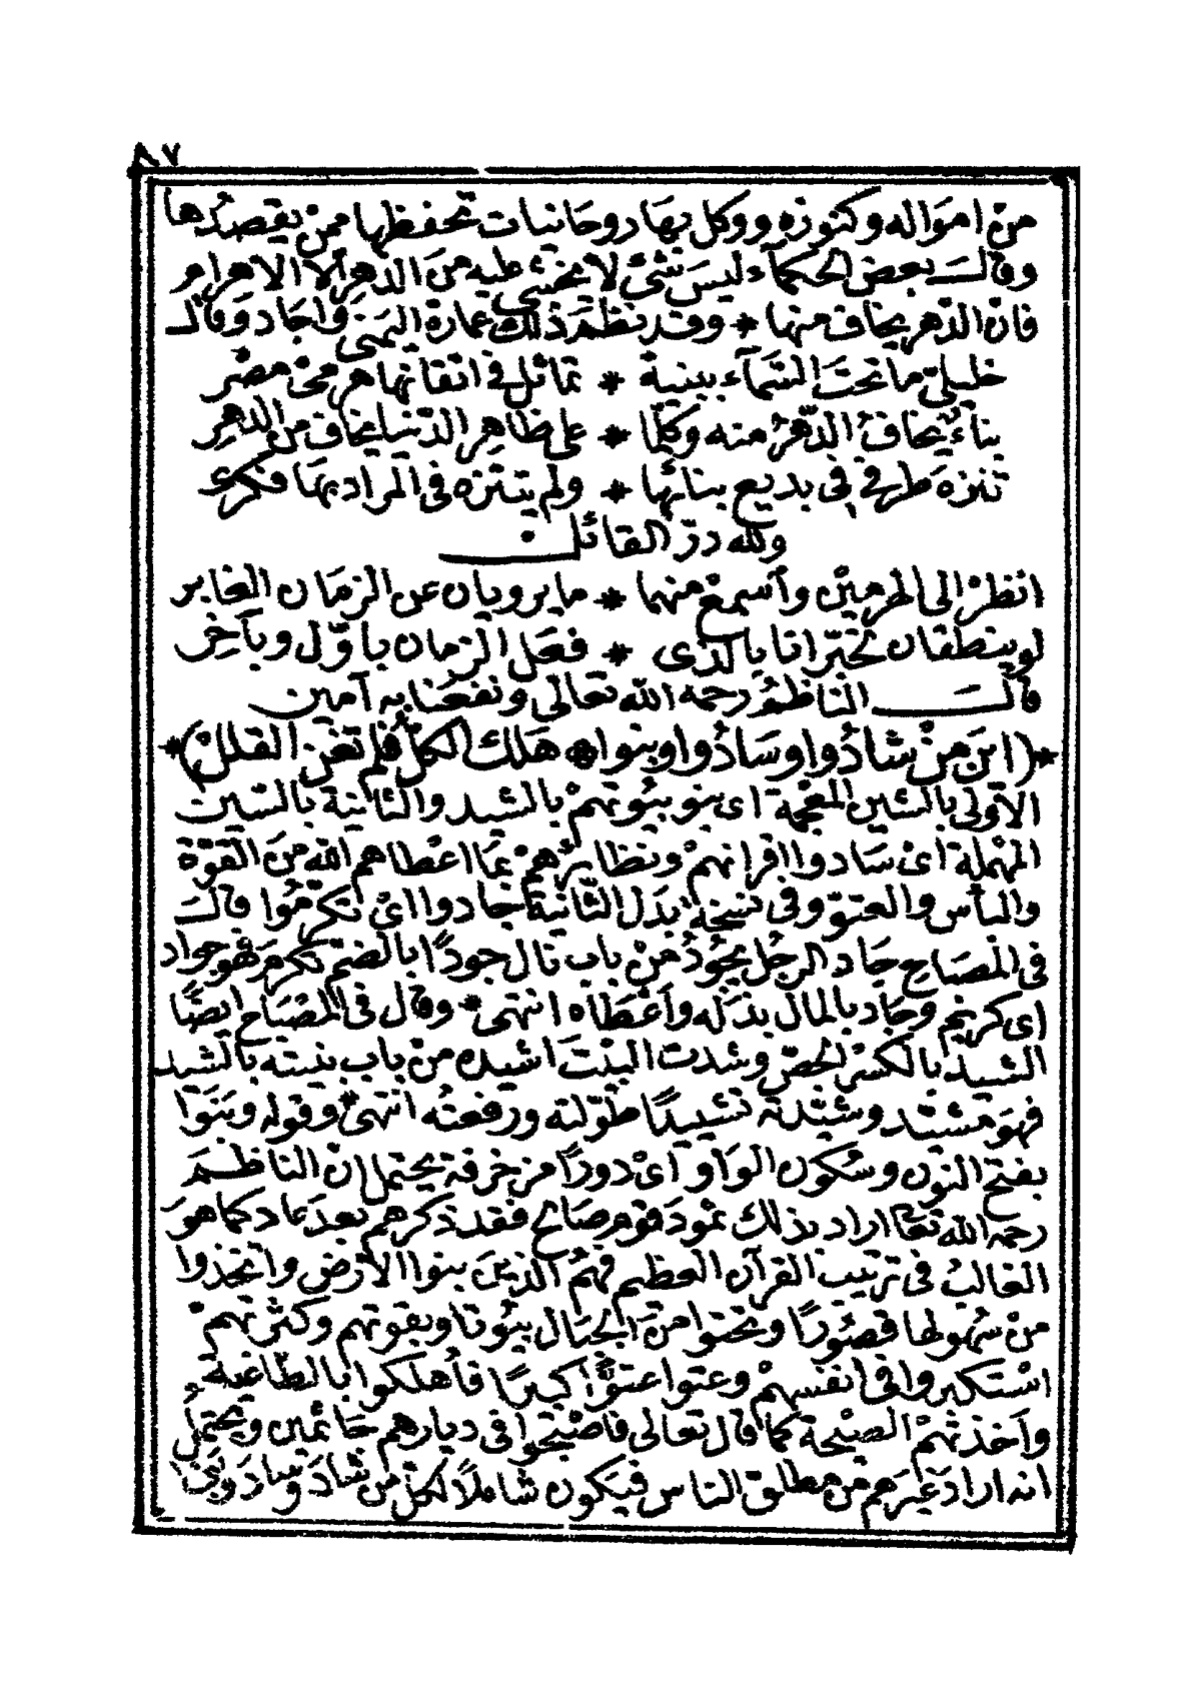 ٨٧
من امواله وكنوزه ووكل بها روحانيات تحفظها ممن يقصدها
وقال بعض الحكماء ليس شئ لا يخشى عليه من الدهر الا الاهرام
فان الدهر يخاف منها * وقد نظم ذلك عمارة اليمنى واجاد وقال
خليلىّ ما تحت السماء ببنية * تماثل فى اتقانها هرمى مصر
بناءٌ يخاف الدّهرُ منه وكلما * على ظاهر الدّنيا يخاف من الدهر
تنزه طرفى فى بديع بنائها * ولم يتنزه فى المراد بها فكرى
ولله درّ القائل
انظرْ الى الهرمين واسمع منهما * ما يرويان عن الزمان الغابر
لو ينطقان لخبّرانا بالذى * فعل الزمان باوّل وبآخر
قال الناظم رحمه الله تعالى ونفعنا به آمين
*(اين من شادوا وسادوا وبنوا * هلك الكلّ فلم تغن القلل)*
الاولى بالشين المعجمة اى بنو بيوتهم بالشيد والثانية بالسين
المهملة اى سادوا اقرانهم ونظائرهم بما اعطاهم الله من القوّة
والبأس والعتوّ وفى نسخة بدل الثانية جادوا اى تكرموا قال
فى المصباح جاد الرجل يجود من باب قال جودًا بالضم تكرم فهو جواد
اى كريم وجاد بالمال بذله واعطاه انتهى * وقال فى المصباح ايضًا
الشيد بالكسر الجصّ وشدت البيت اشيده من باب بنيته بالشيد
فهو مشيّد وشيّدته تشييدًا طوّلته ورفعته انتهى وقوله وبنوا
بفتح النون وسكون الواو اى دورًا مزخرفة يحتمل ان الناظم
رحمه الله تعا اراد بذلك ثمود قوم صالح فقد ذكرهم بعد عاد كما هو
الغالب فى ترتيب القرآن العظيم فهم الذين بنوا الارض واتخذوا
من سهولها قصورًا ونحتوا من الجبال بيوتا وبقوتهم وكثرتهم
استكبروا فى انفسهم وعتوا عتوًّا كبيرًا فأهلكوا بالطاغية
وأخذتهم الصيحة كما قال تعالى فاصبحوا فى ديارهم جاثمين ويحتمل
انه اراد غيرهم من مطلق الناس فيكون شاملاً لكل من شاد وساد وبنى